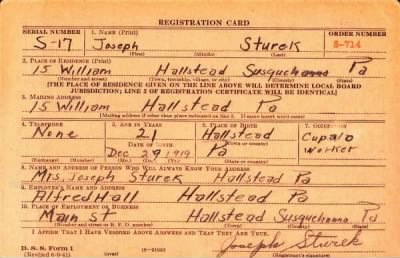 REGISTRATION CARD
SERIAL NUMBER 1. NAME (Print) ORDER NUMBER
S-17 Joseph Sturek S-714
(First) (Middle) (Last)
2. PLACE OF RESIDENCE (Print)
15 William Hallstead Susquehanna Pa
(Number and street) (Town, township, village, or city) (County) (State)
[THE PLACE OF RESIDENCE GIVEN ON THE LINE ABOVE WILL DETERMINE LOCAL BOARD
JURISDICTION; LINE 2 OF REGISTRATION CERTIFICATE WILL BE IDENTICAL]
3. MAILING ADDRESS
15 William Hallstead Pa
[Mailing address if other than place indicated on line 2. If same insert word same]
4. TELEPHONE 5. AGE IN YEARS 6. PLACE OF BIRTH 7. OCCUPATION
None 21 Hallstead Cupalo
DATE OF BIRTH Pa worker
Dec 29 1919
(Exchange) (Number) (Mo.) (Day) (Yr.) (State or country)
8. NAME AND ADDRESS OF PERSON WHO WILL ALWAYS KNOW YOUR ADDRESS
Mrs. Joseph Sturek Hallstead Pa
9. EMPLOYER'S NAME AND ADDRESS
Alfred Hall Hallstead Pa
10. PLACE OF EMPLOYMENT OR BUSINESS
Main St Hallstead Susquehanna Pa
(Number and street or R. F. D. number) (Town) (County) (State)
I AFFIRM THAT I HAVE VERIFIED ABOVE ANSWERS AND THAT THEY ARE TRUE.
D. S. S. Form 1
(Revised 6-9-41) Joseph Sturek